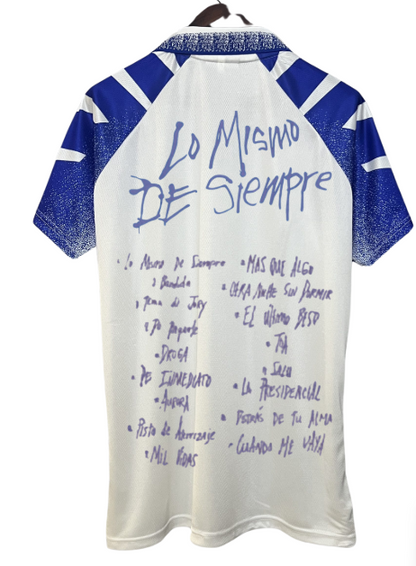 Lo Mismo
DE Siempre
• Lo Mismo De Siempre
• Bandido
• Tema de Jory
• DROGA
• DE INMEDIATO
• AURORA
• Pista de Aterrizaje
• MIL VIDAS
• MAS QUE ALGO
• OTRA NOCHE SIN DORMIR
• EL ÚLTIMO BESO
• SOLO
• LA PRESIDENCIAL
• DETRÁS DE TU ALMA
• CUANDO ME VAYA